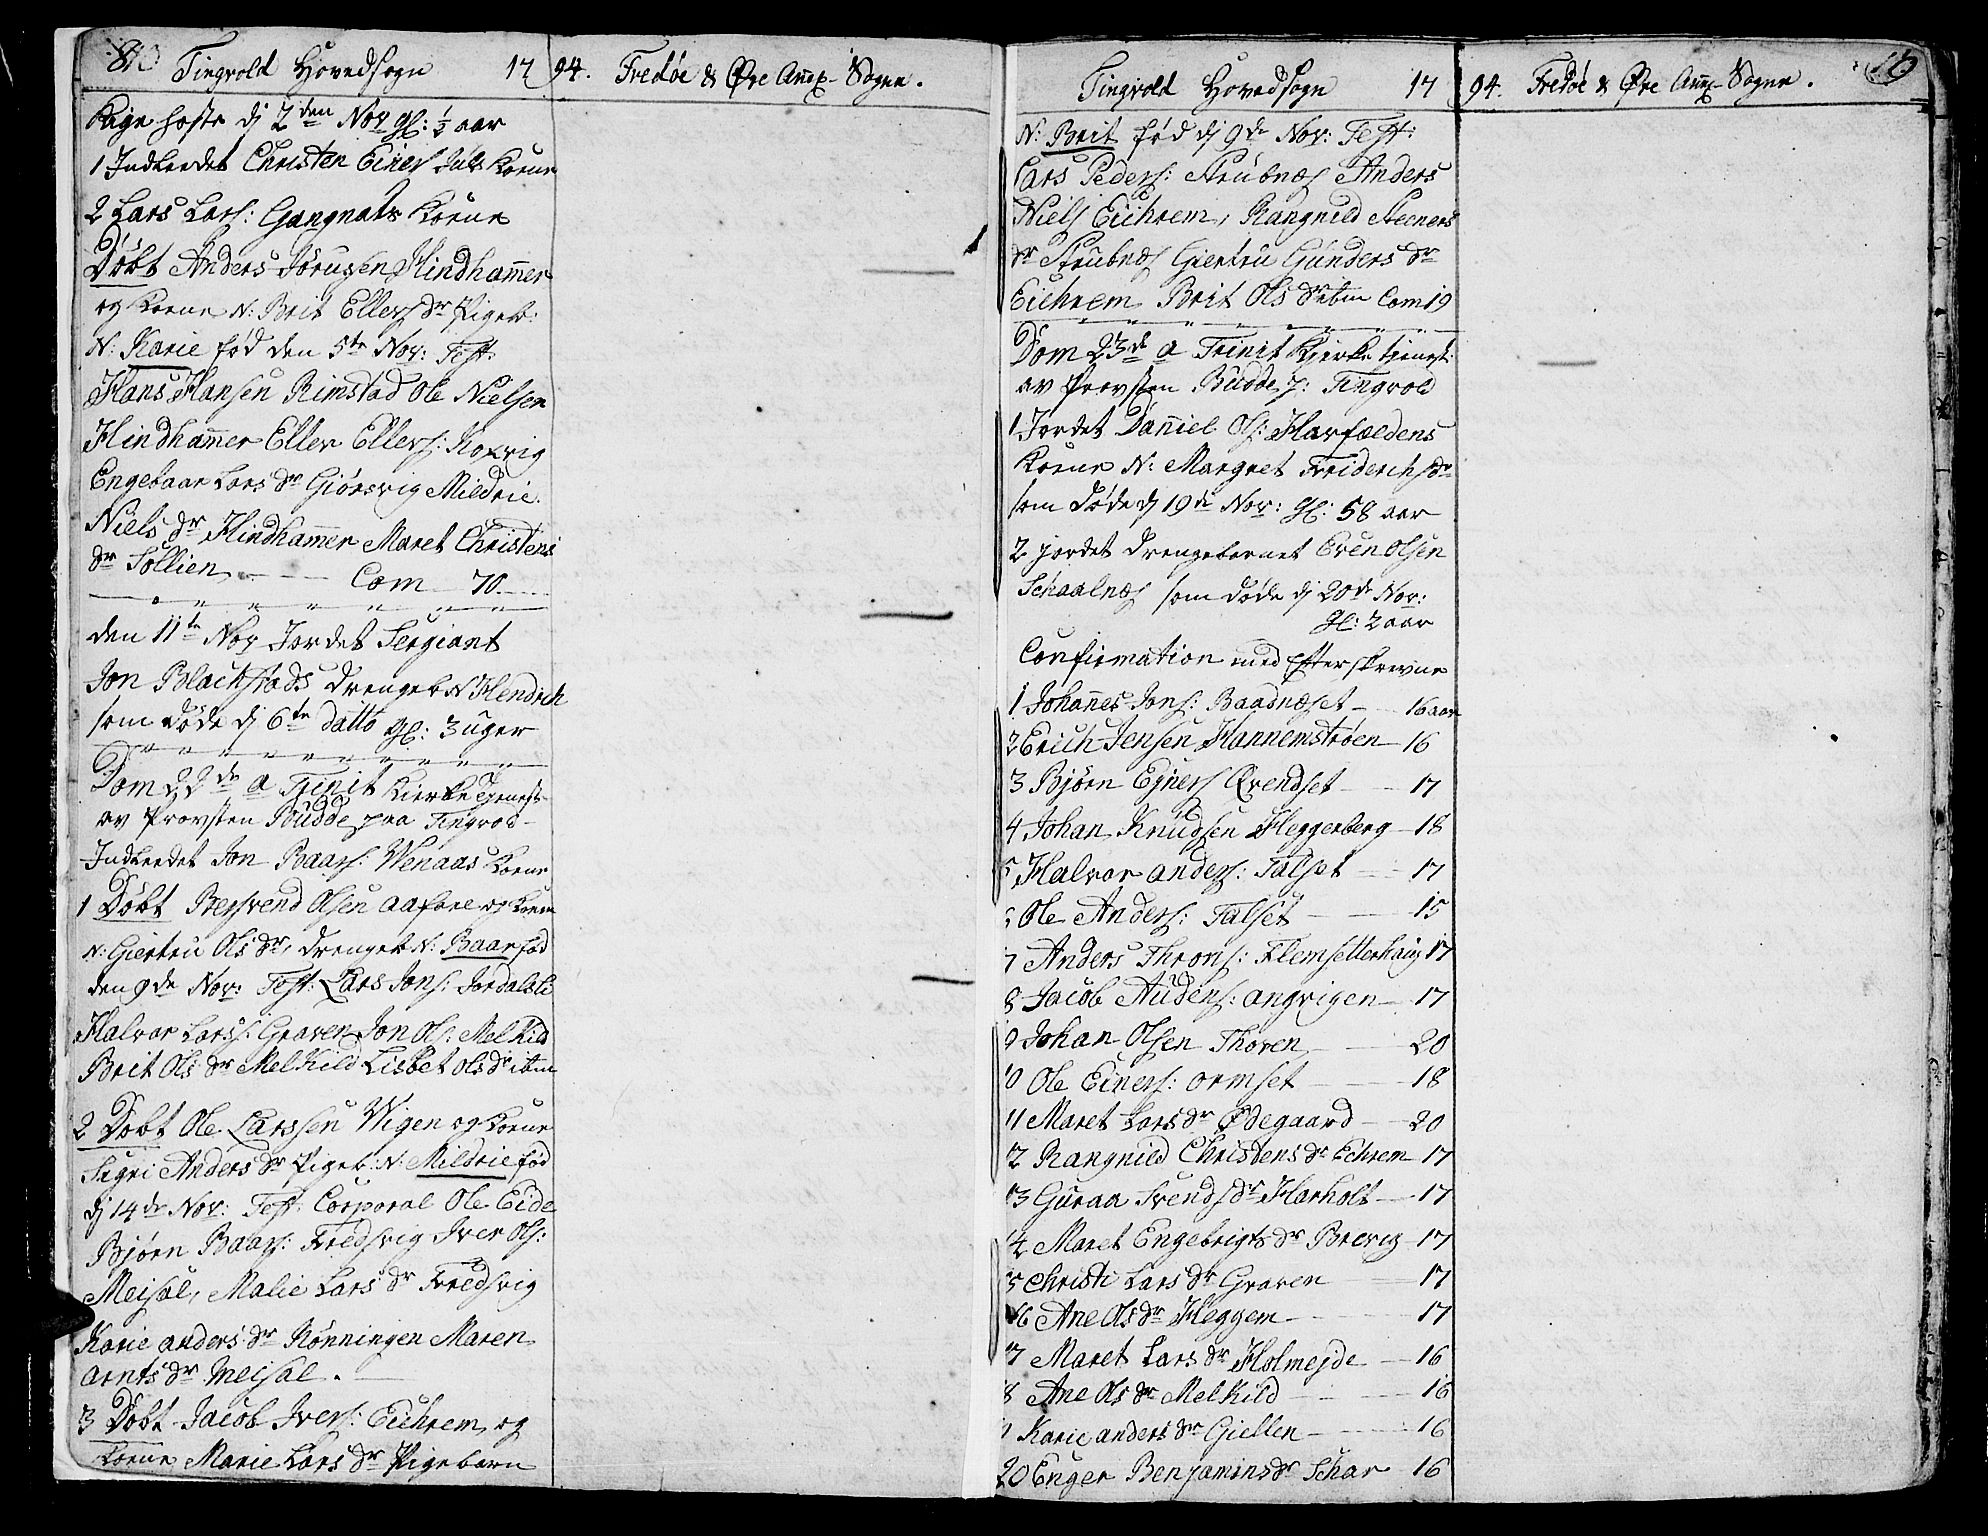 Tingvold Hovedsogn 17
94. Fredøe & Øre Annx-Sogne.
Kige hoste dj 2den Nov gl: 1/2 aar
1 Indleedet Christen Einers Juls Kone
2 Lars Lars: Gangnats Kone
Döbt Anders Jörusen Hindhammer
og Kone N: Brit Ellers dr Pigeb:
N: Karie fød den 5te Nov: Test:
Hans Hansen Rimstad Ole Nielsen
Hindhammer Eller Ellers: Koxvig
Engebaar Lars dr Giørsvig Mildrie
Niels dr Hindhammer Maret Christens
dr Sollien Com 70
den 11te Nov Jordet Sergiant
Jon Blachstads drengeb N Hendrich
som døde dj 6te datto gl: 3 uger
Dom 22de a Trinit Kierke tjenest
av Provsten Budde paa Tingvod
Indleedet Jon Baars: Wenaas Kone
1 Döbt Bersvend Olsen Aafare og Kone
N: Giertru Ols dr, drengeb N: Baar fød
den 9de Nov: Test: Lars Jons: Jordalsli
Halvor Larss: Graven Jon Ols: Melkild
Brit Ols dr Melkild Lisbet Ols dr ibm
2 Döbt Ole Larssen Wigen og Kone
Sigri Anders dr Pigeb: N: Mildrie fød
dj 14de Nov: Test: Corporal Ole Eide
Bjørn Baars: Fredsvig Iver Ols:
Meisal, Malie Lars dr Fredsvig
Karie anders dr Rønningen Maren
Arnts dr Meisal.
3 Döbt Jacob Ivers: Eichrem og
Kone Marie Lars dr Pigebarn
Tingvold Hovedsogn 17
94. Fredøe & Øre Annx-Sogne.
16
N: Brit fød dj 9de Nov: Test:
Lars Peders: Strubnæs Anders
Niels Eichrem, Rangnild Steeners
dr Strubnæs Giertru Gunders dr
Eichrem Brit Ols dr ibm Com 19
Dom 23de a Trinit Kjerke tjenest:
av Provsten Budde p: Tingvold
1 Jordet Danniel Ols: Harfældens
Kone N: Margret Friderichs dr
som døde dj 19de Nov: gl: 58 aar
2 jordet drengebarnet Even Olsen
Schaalnæs som døde dj 20de Nov:
gl: 2 aar
Confirmation med Efterskrevne
1 Johannes Jons: Baadnæset 16 aar
2 Erich Jensen Hannemstrøen 16
3 Bjørn Ejners Qvendset 17
4 Johan Knudsen Heggerberg 18
5 Halvor anders: Talset 17
Ole Anders: Talset 15
7 Anders Throns: Flemsetterhaug 17
8 Jacob Audens: angvigen 17
9 Johan Olsen Thoren 20
10 Ole Einers: ormset 18
11 Maret Lars dr Ødegaard 20
12 Rangnild Christens dr Echrem 17
13 Guraa Svends dr Harholt 17
14 Maret Engebrigts dr Brevig 17
15 Christi Lars dr Graven 17
16 Ane Ols dr Heggem 17
17 Maret Lars dr Holmejde 16
18 Ane Ols dr Melkild 16
Karie anders dr Giellen 16
20 Enger Benjamins dr Schar 16